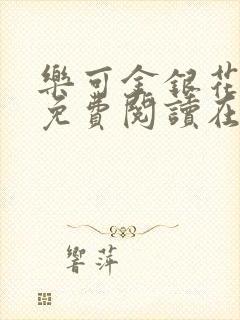 樂可金銀花
免費閱讀在
響萍